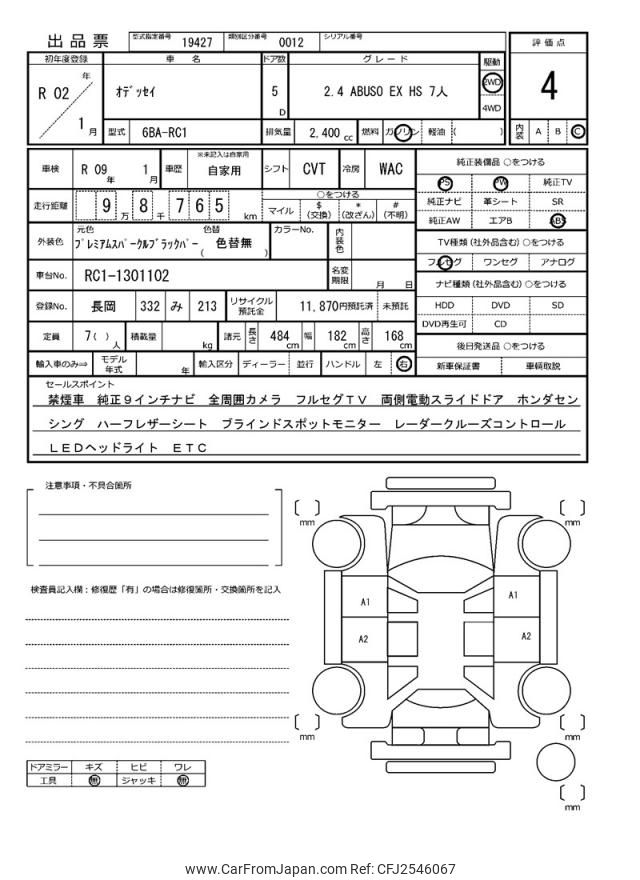 出品票 型式指定番号 19427 類別区分番号 0012 シリアル番号
評価点
4
内装 A B C
初年度登録 車 名 ドア数 グレード 駆動
R 02 年 1月 ｵﾃﾞｯｾｲ 5 D 2.4 ABUSO EX HS 7人 2WD
4WD
型式 6BA-RC1 排気量 2,400 cc 燃料 ガソリン 軽油 ( )
車検 R 09 年 1 月 車歴 ※未記入は自家用 自家用 シフト CVT 冷房 WAC
走行距離 9 万 8 千 7 6 5 km
○をつける
マイル $ (交換) * (改ざん) # (不明)
外装色 元色 色替
ﾌﾟﾚﾐｱﾑｽﾊﾟｰｸﾙﾌﾞﾗｯｸﾊﾟｰ ( 色替無 ) カラーNo. 内装色
車台No. RC1-1301102 名変期限 月 日
登録No. 長岡 332 み 213 リサイクル預託金 11,870円預託済 未預託
定員 7( ) 人 積載量 kg 諸元 長さ 484 cm 幅 182 cm 高さ 168 cm
輸入車のみ⇒ モデル年式 年 輸入区分 ディーラー 並行 ハンドル 左 右
純正装備品 ○をつける
PS PW 純正TV
純正ナビ 革シート SR
純正AW エアB ABS
TV種類 (社外品含む) ○をつける
フルセグ ワンセグ アナログ
ナビ種類 (社外品含む) ○をつける
HDD DVD SD
DVD再生可 CD
後日発送品 ○をつける
新車保証書 車輌取説
セールスポイント
禁煙車 純正９インチナビ 全周囲カメラ フルセグＴＶ 両側電動スライドドア ホンダセン
シング ハーフレザーシート ブラインドスポットモニター レーダークルーズコントロール
ＬＥＤヘッドライト ＥＴＣ
注意事項・不具合箇所
検査員記入欄：修復歴「有」の場合は修復箇所・交換箇所を記入
ドアミラー キズ ヒビ ワレ
工具 無 ジャッキ 無
mm mm
A1 A1
A2 A2
mm mm
mm
www.CarFromJapan.com Ref: CFJ2546067